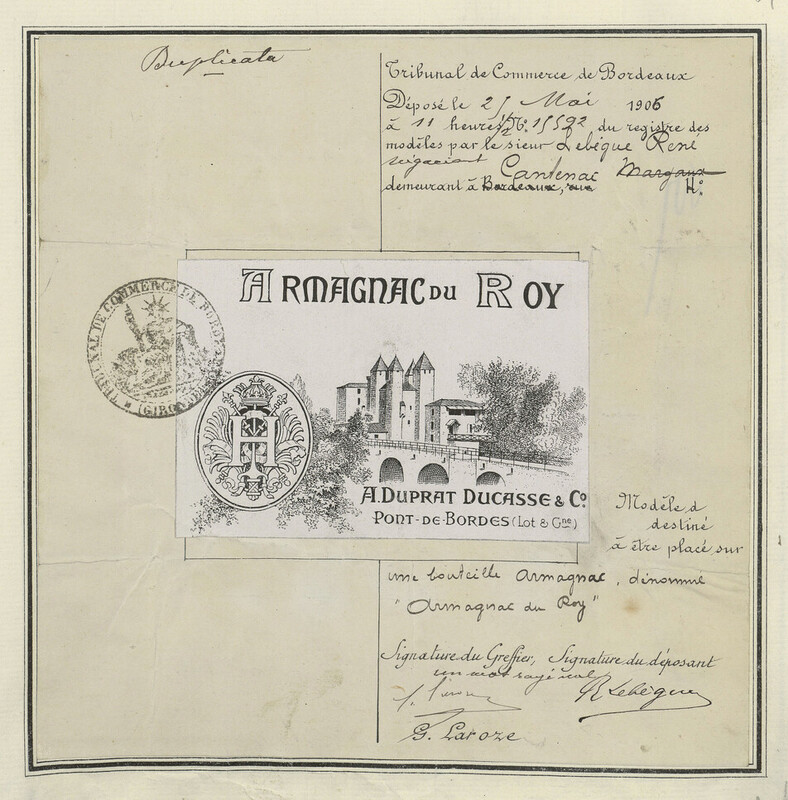 Duplicata
Tribunal de Commerce de Bordeaux
Déposé le 25 Mai 1906
à 11 heures 1/2 No. 15592 du registre des
modèles par le sieur Lebègue René
négociant Cantenac Margaux
demeurant à Bordeaux, rue No.
TRIBUNAL DE COMMERCE DE BORDEAUX
(GIRONDE)
ARMAGNAC DU ROY
H
A. DUPRAT DUCASSE & Co.
PONT-DE-BORDES (Lot & Gne)
Modèle d
destiné
à être placé sur
une bouteille Armagnac, dénommé
"Armagnac du Roy"
Signature du Greffier, Signature du déposant
un mot rayé nul
RLebègue
G. Laroze